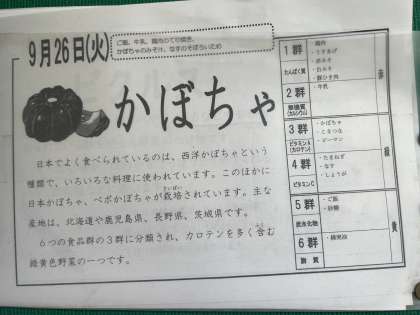 9月26日(火)
ご飯、牛乳、鶏肉のてり焼き、
かぼちゃのみそ汁、なすのそぼろいため
かぼちゃ
日本でよく食べられているのは、西洋かぼちゃという
種類で、いろいろな料理に使われています。このほかに
日本かぼちゃ、ペポかぼちゃが栽培されています。主な
産地は、北海道や鹿児島県、長野県、茨城県です。
6つの食品群の3群に分類され、カロテンを多く含む
緑黄色野菜の一つです。
1群
たんぱく質
・鶏肉
・うすあげ
・赤みそ
・白みそ
・豚ひき肉
2群
無機質
(カルシウム)
・牛乳
3群
ビタミンA
(カロテン)
・かぼちゃ
・こまつな
・ピーマン
4群
ビタミンC
・たまねぎ
・なす
・しょうが
5群
炭水化物
・ご飯
・砂糖
6群
脂質
・綿実油
赤
緑
黄